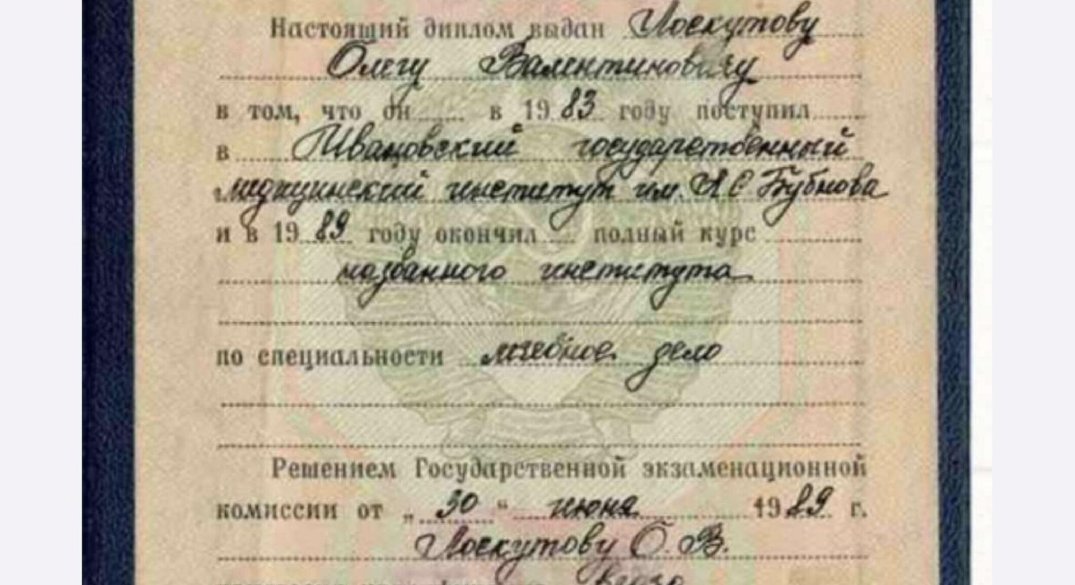 Настоящий диплом выдан Лоскутову
Олегу Валентиновичу
в том, что он в 1983 году поступил
в Ивановский государственный
медицинский институт им. А С Бубнова
и в 1989 году окончил полный курс
названного института
по специальности лечебное дело
Решением Государственной экзаменационной
комиссии от „30“ июня 1989 г.
Лоскутову О. В.